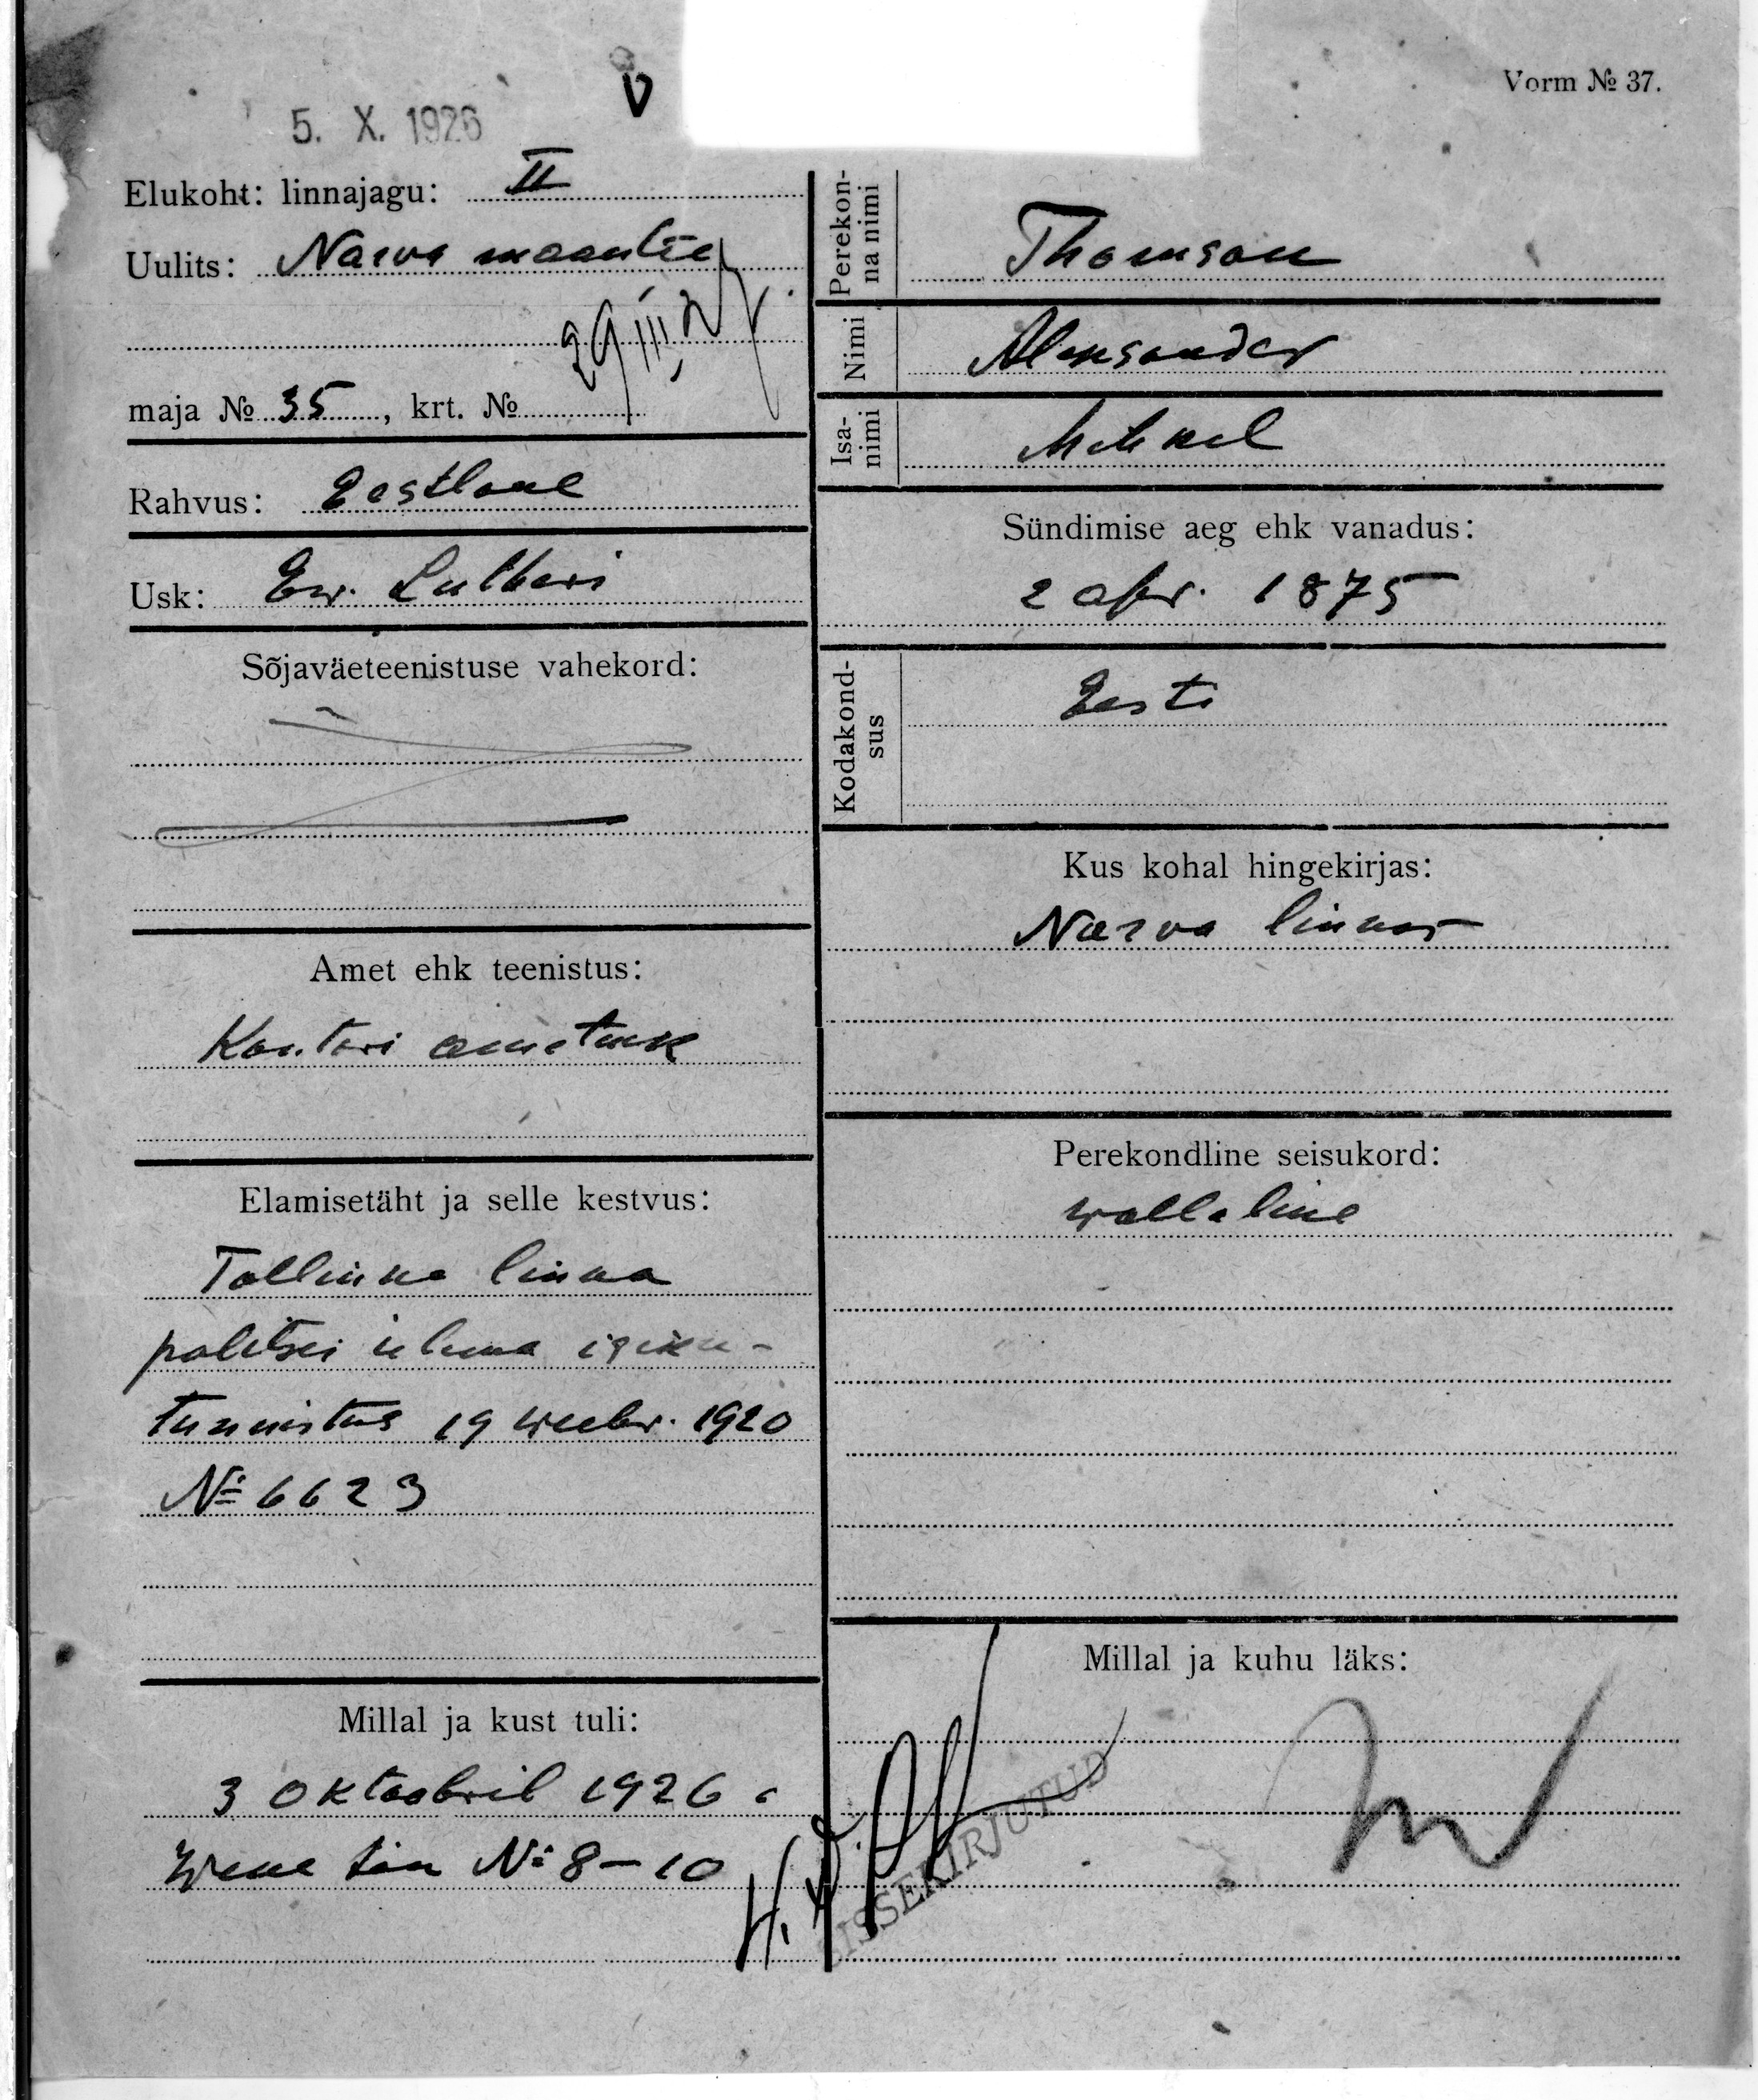 Vorm № 37.
5. X. 1926
V
Elukoht: linnajagu: II
Uulits: Narva maantee
29 III 27
maja № 35, krt. №
Rahvus: Eestlane
Usk: Ew. Lutheri
Sõjaväeteenistuse vahekord:
Amet ehk teenistus:
Kontori ametnik
Elamisetäht ja selle kestvus:
Tallinna linna
politsei ülema isiku-
tunnistus 19 weebr. 1920
№ 6623
Millal ja kust tuli:
3 oktoobril 1926 a
Wene tän № 8-10
Perekon-
na nimi
Thomson
Nimi
Aleksander
Isa-
nimi
Mihkel
Sündimise aeg ehk vanadus:
2 apr. 1875
Kodakond-
sus
Eesti
Kus kohal hingekirjas:
Narva linnas
Perekondline seisukord:
wallaline
Millal ja kuhu läks:
SISSEKIRJUTUD